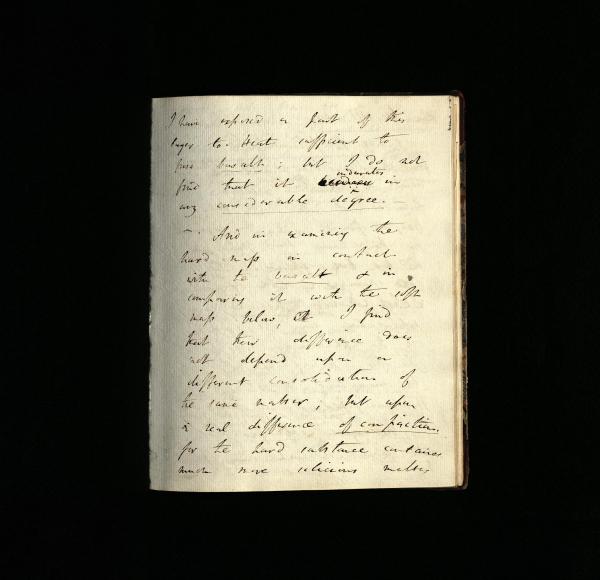 I have exposed a part of this
layer to heat sufficient to
fuse basalt; but I do not
find that it indurates in
any considerable degree. —
— And in examining the
hard mass in contact
with the basalt & in
comparing it with the soft
mass below, I find
that their difference does
not depend upon a
different consolidation of
the same matter; but upon
a real difference of composition
for the hard substance contains
much more siliceous matter